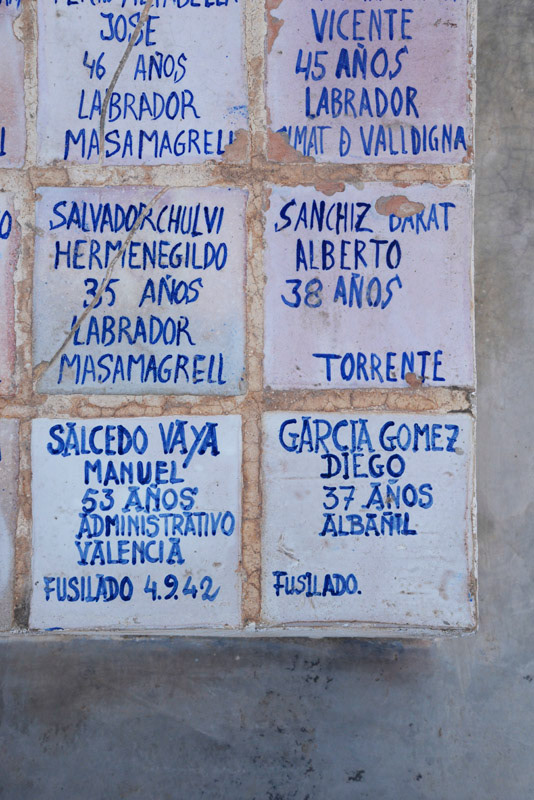 JOSE
46 AÑOS
LABRADOR
MASAMAGRELL
VICENTE
45 AÑOS
LABRADOR
SIMAT D VALLDIGNA
SALVADOR CHULVI
HERMENEGILDO
35 AÑOS
LABRADOR
MASAMAGRELL
SANCHIZ BARAT
ALBERTO
38 AÑOS
TORRENTE
SALCEDO VAYA
MANUEL
53 AÑOS
ADMINISTRATIVO
VALENCIA
FUSILADO 4.9.42
GARCIA GOMEZ
DIEGO
37 AÑOS
ALBAÑIL
FUSILADO.